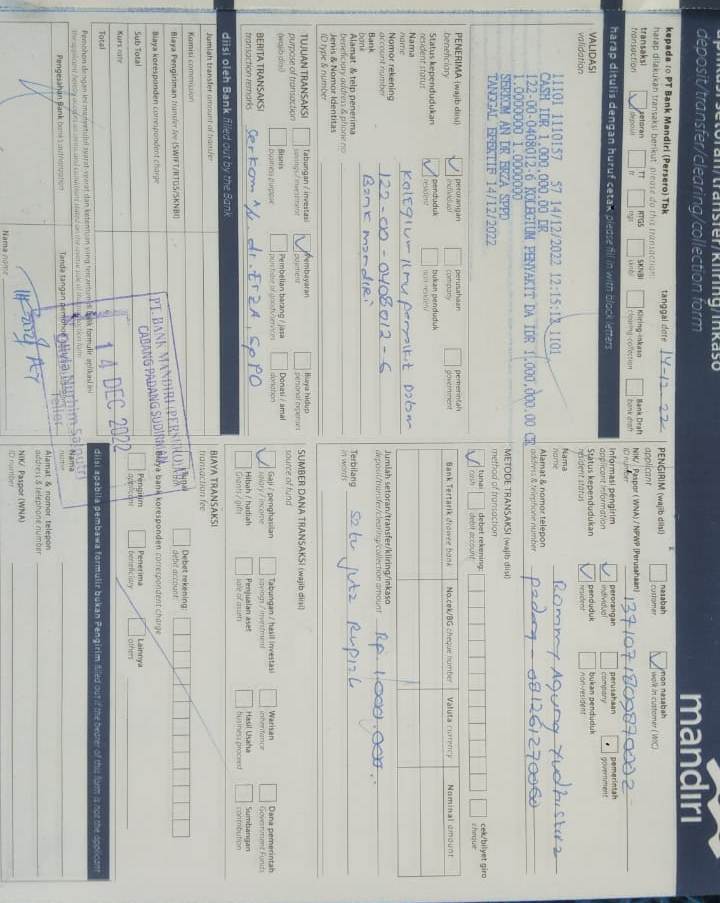 mandiri
deposit/transfer/clearing/collection form
kepada to PT Bank Mandiri (Persero) Tbk
tanggal date 14-12-22
harap dilakukan transaksi berikut please do this transaction:
transaksi transaction
setoran deposit
TT tt
RTGS rtgs
SKNBI sknbi
Kliring-inkaso clearing-collection
Bank Draft bank draft
harap ditulis dengan huruf cetak please fill in with block letters
VALIDASI
validation
11101 1110157 57 14/12/2022 12:15:13 1101
CASH IDR 1,000,000.00 DR
122-00-0408012-6 KOLEGIUM PENYAKIT DA IDR 1,000,000.00 CR
1.0000000 1.0000000
SERKOM AN DR ERZA SPPD
TANGGAL EFEKTIF 14/12/2022
PENERIMA (wajib diisi)
beneficiary
perorangan individual
perusahaan company
pemerintah government
Status kependudukan
resident status
penduduk resident
bukan penduduk non-resident
Nama
name
Kolegium ilmu penyakit dalam
Nomor rekening
account number
122-00-0408012-6
Bank
bank
Bank mandiri
Alamat & telp penerima
beneficiary address & phone no.
Jenis & Nomor Identitas
ID type & number
TUJUAN TRANSAKSI
purpose of transaction
(wajib diisi)
Tabungan / investasi savings / investment
Pembayaran payment
Biaya hidup personal expenses
Bisnis business purpose
Pembelian barang / jasa purchase of goods/services
Donasi / amal donation
BERITA TRANSAKSI
transaction remarks
Serkom a/n. dr. Erza, SpPD
diisi oleh Bank filled out by the Bank
Jumlah transfer amount of transfer
Komisi commission
Biaya Pengiriman transfer fee (SWIFT/RTGS/SKNBI)
Biaya koresponden correspondent charge
Sub Total
Kurs rate
Total
PT. BANK MANDIRI (PERSERO) Tbk
CABANG PADANG SUDIRMAN
14 DEC 2022
Pengesahan Bank bank's authorization
Tanda tangan pemohon
Teller
Nama name
PENGIRIM (wajib diisi)
applicant
nasabah customer
non nasabah walk in customer (WIC)
NIK/ Paspor (WNA) / NPWP (Perusahaan)
ID number
1371071809870002
Informasi pengirim
applicant information
perorangan individual
perusahaan company
pemerintah government
Status kependudukan
resident status
penduduk resident
bukan penduduk non-resident
Nama
name
Rommy Agung Yudhistira
Alamat & nomor telepon
address & telephone number
padang 081261270060
METODE TRANSAKSI (wajib diisi)
method of transaction
tunai cash
debet rekening: debit account:
cek/bilyet giro cheque
Bank Tertarik drawee bank
No.cek/BG cheque number
Valuta currency
Nominal amount
Jumlah setoran/transfer/kliring/inkaso
deposit/transfer/clearing/collection amount
Rp 1.000.000.
Terbilang
in words
Satu juta Rupiah
SUMBER DANA TRANSAKSI (wajib diisi)
source of fund
Gaji / penghasilan salary / income
Tabungan / hasil investasi savings / investment
Warisan inheritance
Dana pemerintah Government Funds
Hibah / hadiah Grants / gifts
Penjualan aset sale of assets
Hasil Usaha business proceed
Sumbangan contribution
BIAYA TRANSAKSI
transaction fee
Debet rekening: debit account:
Biaya bank koresponden correspondent charge
Pengirim applicant
Penerima beneficiary
Lainnya others
diisi apabila pembawa formulir bukan Pengirim filled out if the bearer of this form is not the applicant
Nama
name
Alamat & nomor telepon
address & telephone number
NIK/ Paspor (WNA)
ID number